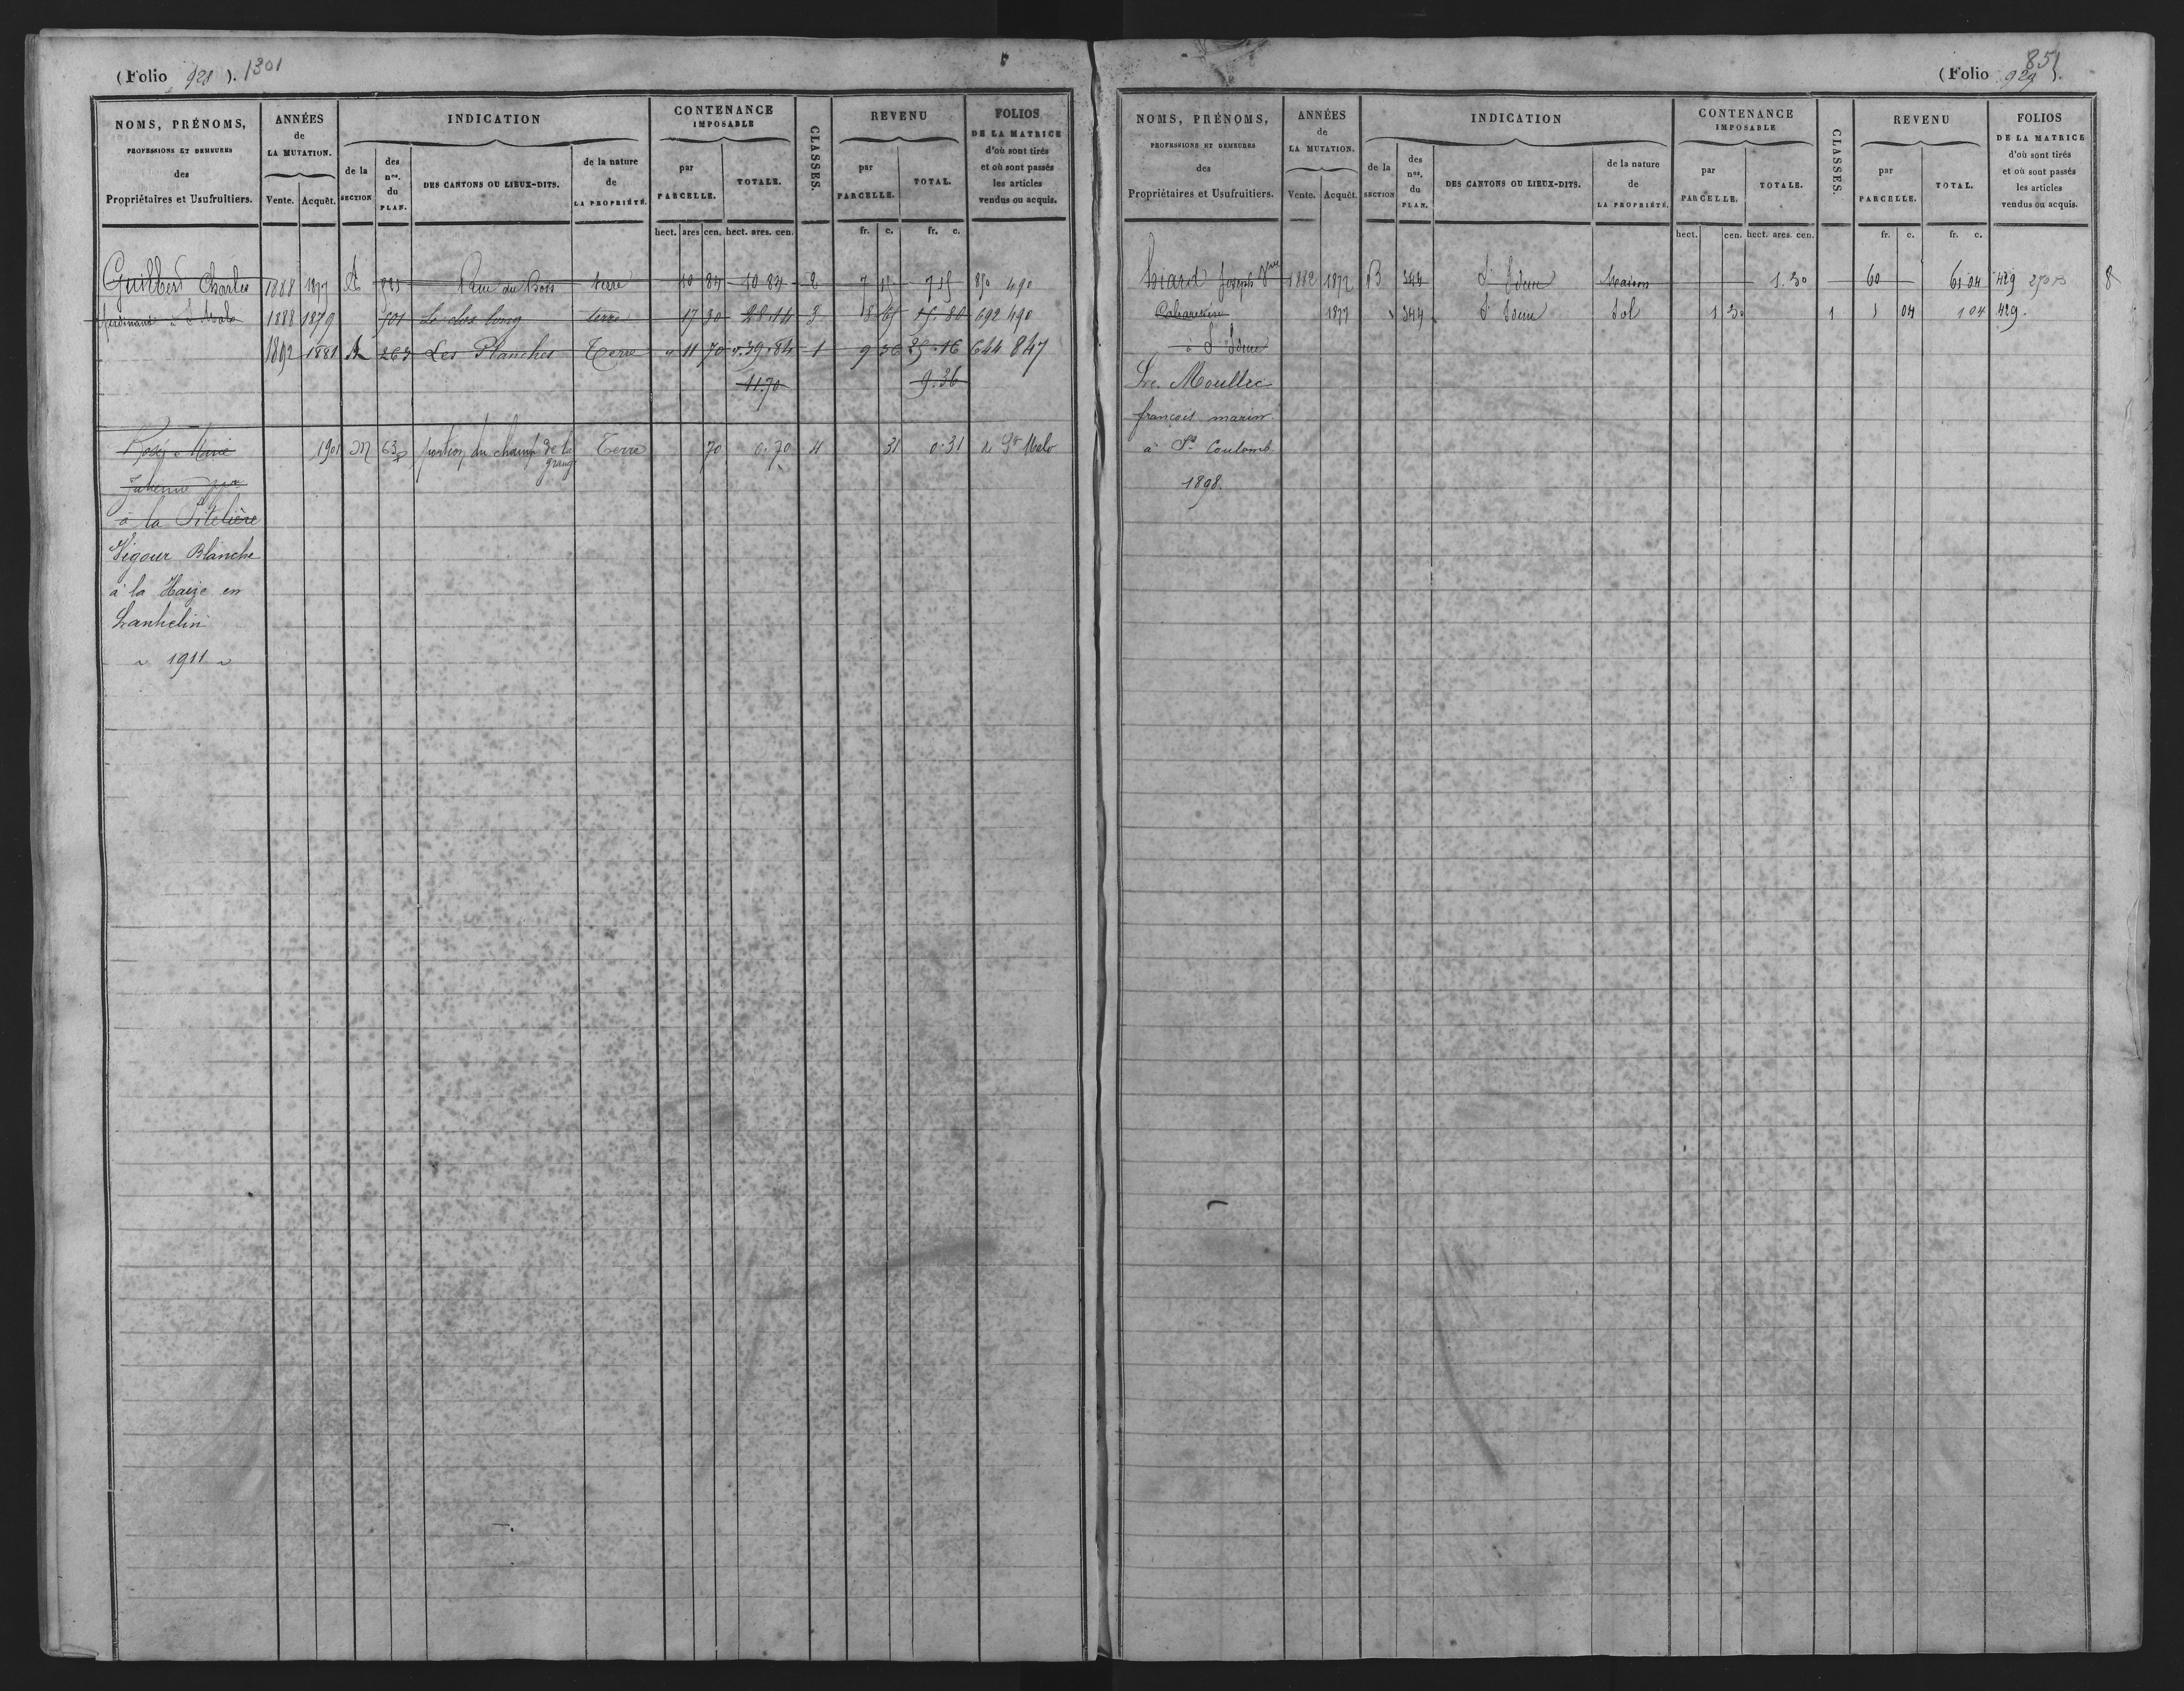 (Folio 928). 1301
NOMS, PRÉNOMS, PROFESSIONS ET DEMEURES des Propriétaires et Usufruitiers. ANNÉES de LA MUTATION. Vente. Acquêt. INDICATION de la SECTION des nos. du PLAN. DES CANTONS OU LIEUX-DITS. de la nature de LA PROPRIÉTÉ. CONTENANCE IMPOSABLE par PARCELLE. TOTALE. CLASSES. REVENU par PARCELLE. TOTAL. FOLIOS DE LA MATRICE d'où sont tirés et où sont passés les articles vendus ou acquis.
hect. ares cen. hect. ares. cen. fr. c. fr. c.
Guilbert Charles 1888 1877 A Rue du Bois terre 10 84 10 84 2 7 15 7 15 850 490
ferdinand à St Malo 1888 1879 501 Le clos long terre 17 30 28.14 3 692 490
1892 1881 A 263 Les Planches Terre " 11 70 ". 39.84 1 9 36 35.16 644 847
11.70 9.36
Rosé Marie 1901 M 63p portion du champ de la grange Terre 70 0.70 4 31 0.31 de St Malo
à la
Vigour Blanche
à la Haize en
Lanhelin
~ 1911 ~
(Folio 929). 851
NOMS, PRÉNOMS, PROFESSIONS ET DEMEURES des Propriétaires et Usufruitiers. ANNÉES de LA MUTATION. Vente. Acquêt. INDICATION de la SECTION des nos. du PLAN. DES CANTONS OU LIEUX-DITS. de la nature de LA PROPRIÉTÉ. CONTENANCE IMPOSABLE par PARCELLE. TOTALE. CLASSES. REVENU par PARCELLE. TOTAL. FOLIOS DE LA MATRICE d'où sont tirés et où sont passés les articles vendus ou acquis.
hect. cen. hect. ares. cen. fr. c. fr. c.
Joseph Vve 1882 1877 B 344 St Ideuc Maison 1.30 60 61 04 429 8
1877 344 St Ideuc Sol 1 30 1 1 04 1 04 429.
à St Ideuc
Le Moullec
françois marin
à St Coulomb
1898.